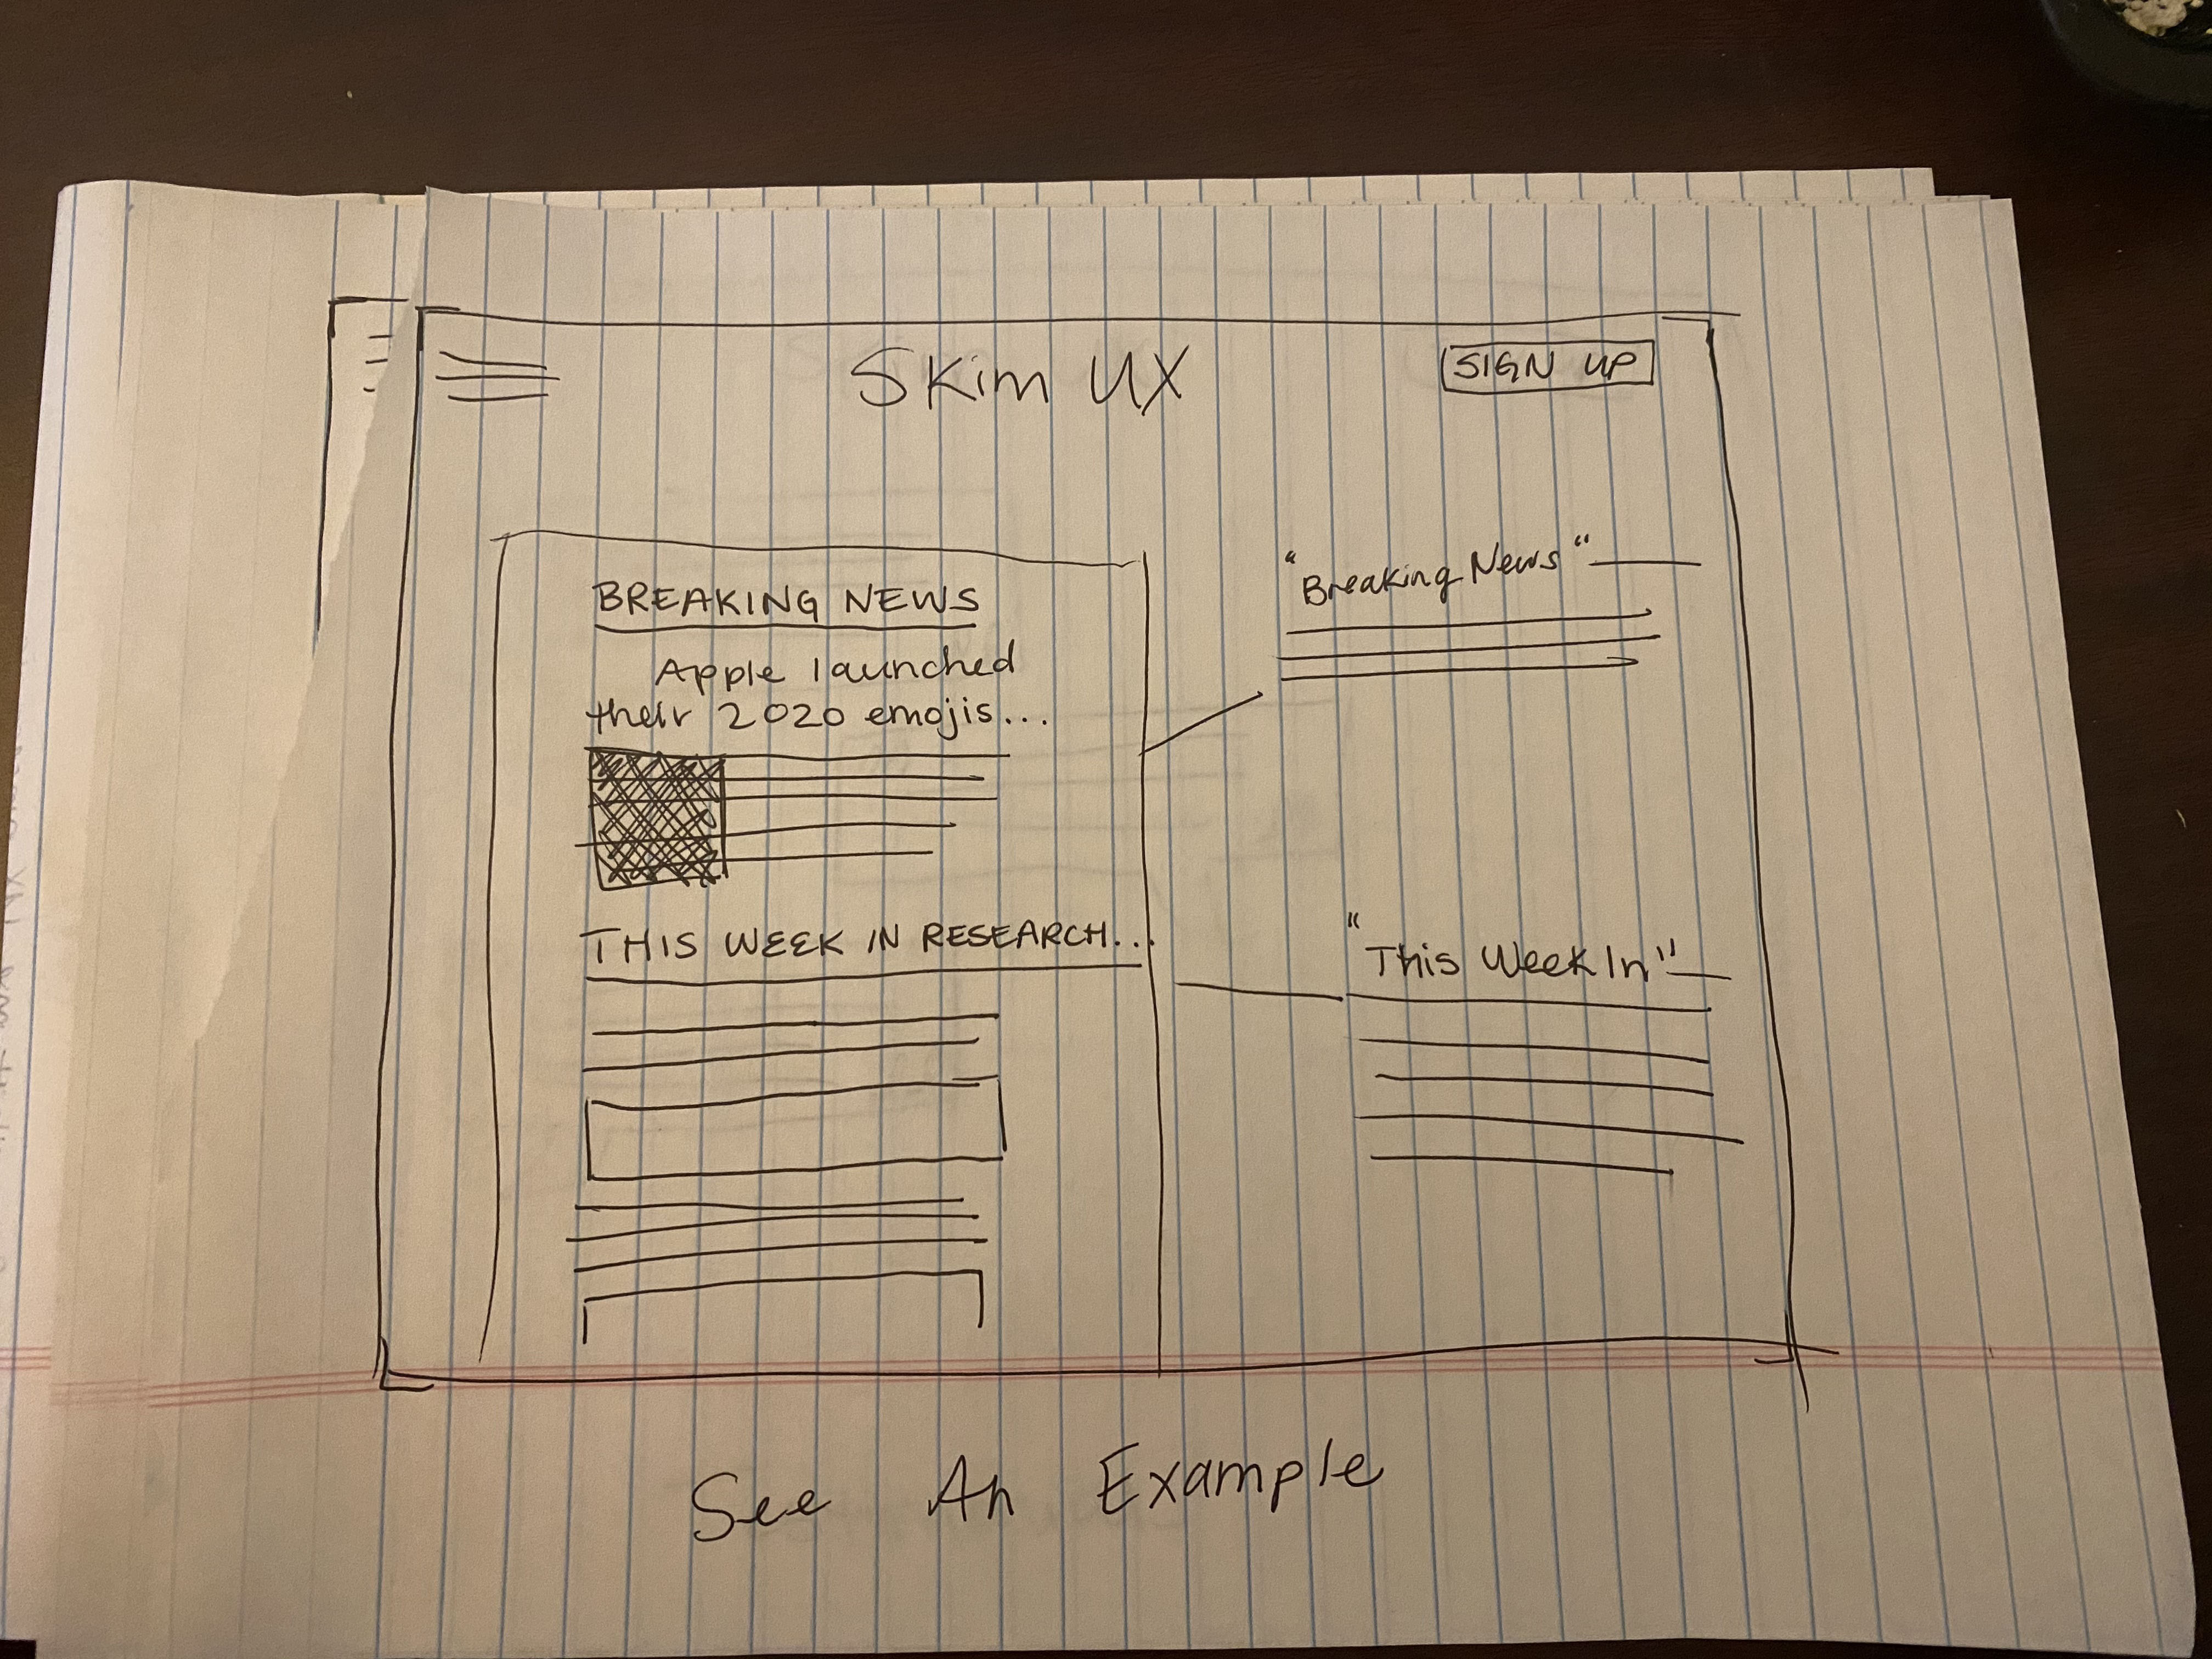 Skim UX
SIGN UP
BREAKING NEWS
Apple launched
their 2020 emojis...
THIS WEEK IN RESEARCH...
"Breaking News"
"This Week In"
See An Example